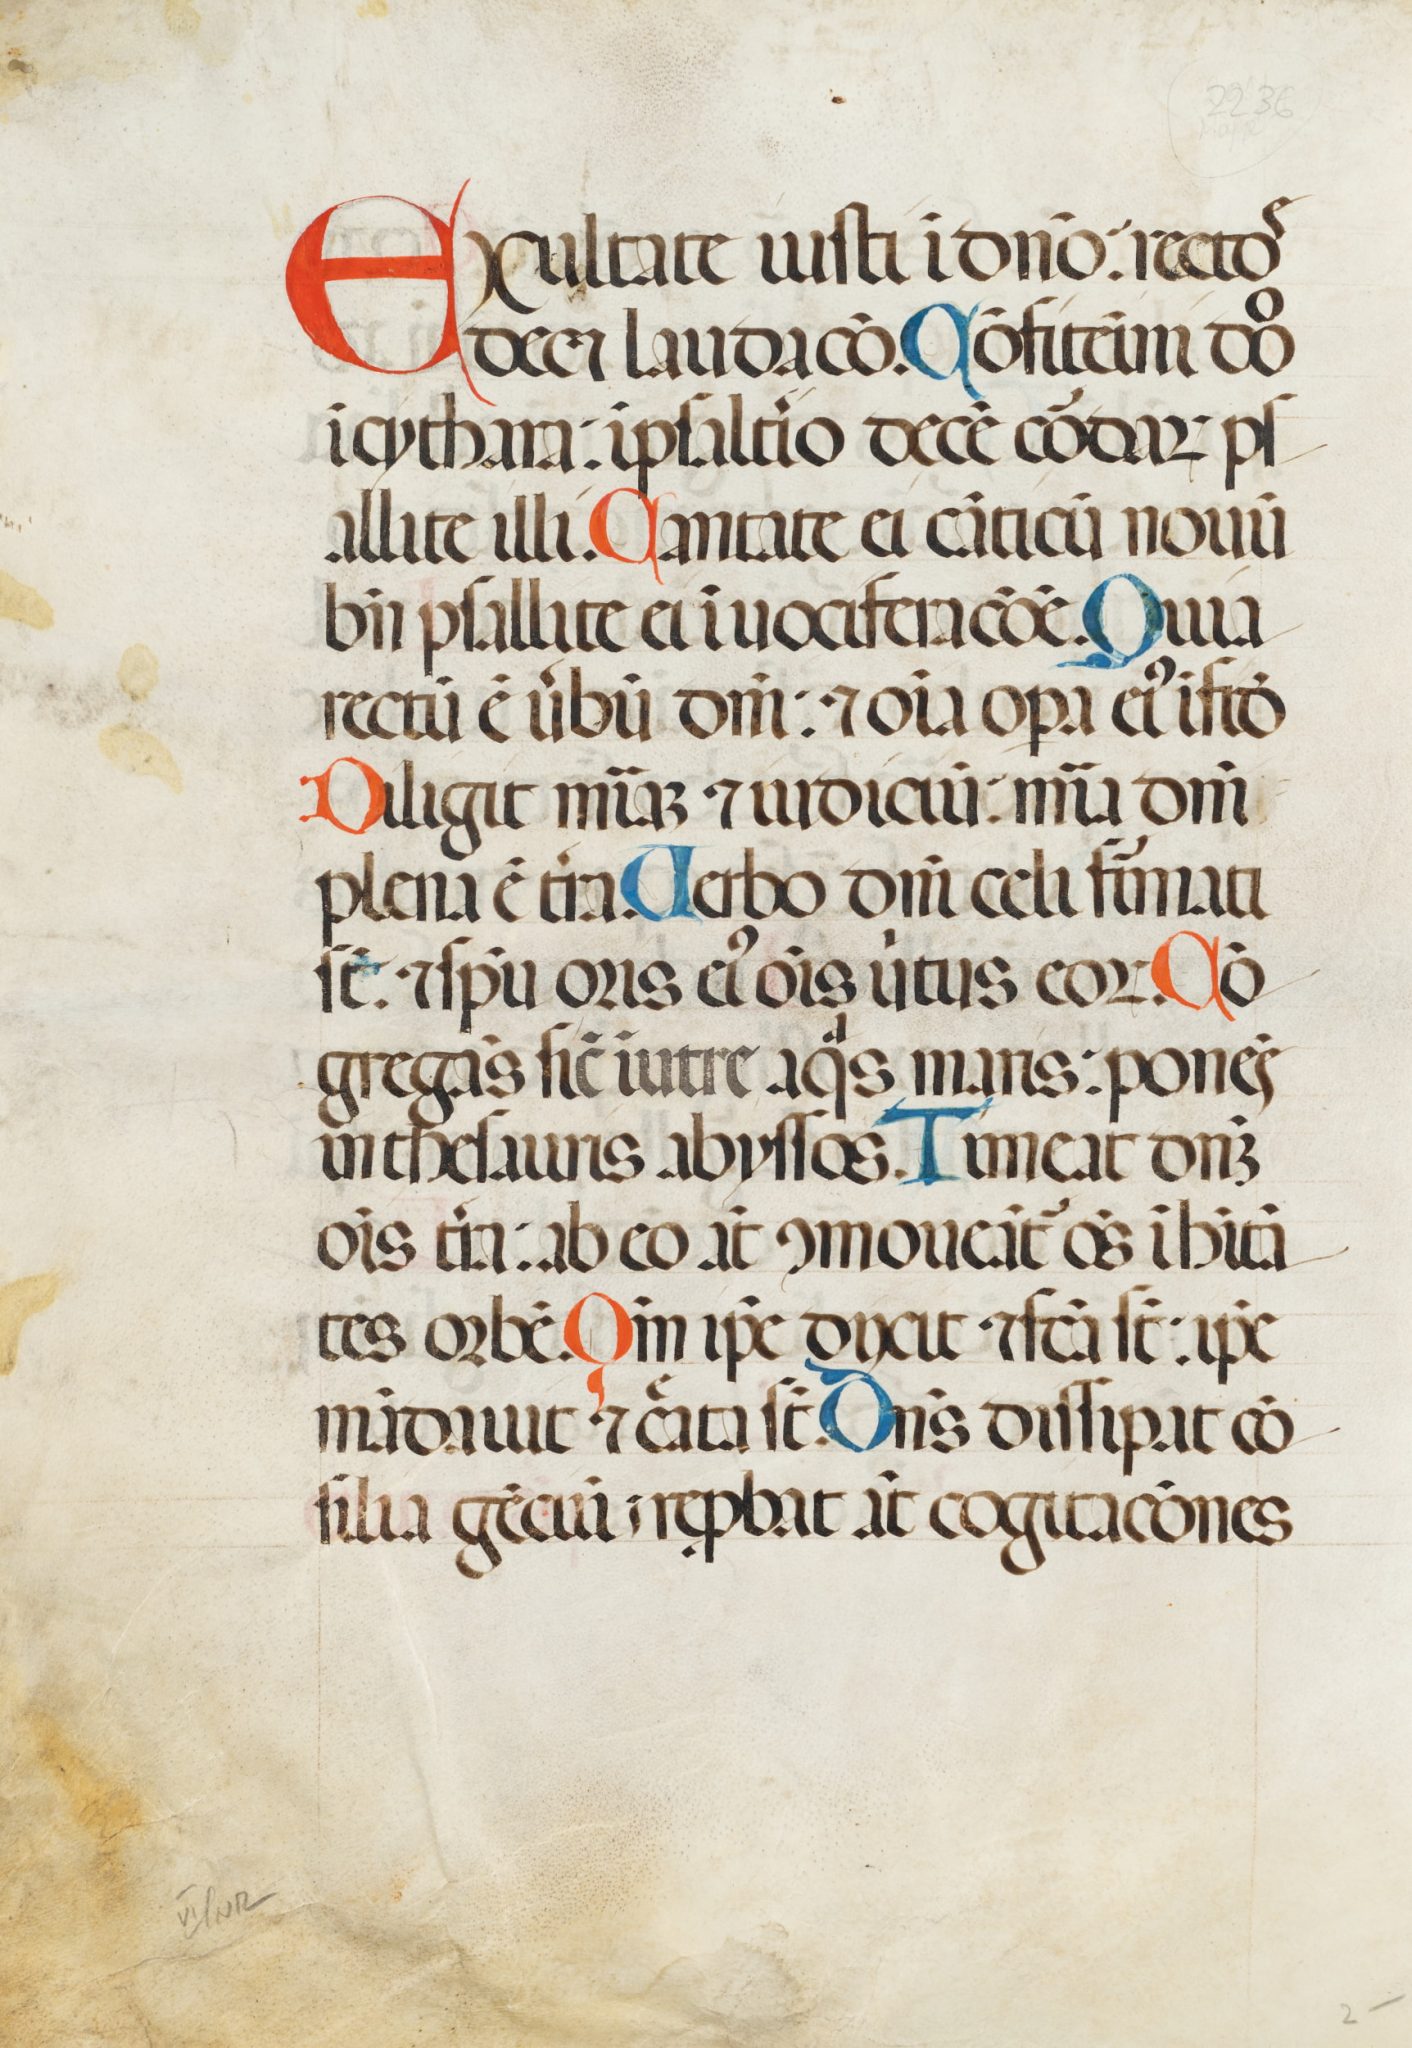 22'36
Exultate iusti ī dn̄o: recto⁹
decꝫ laudacō. Cōfitemī do
i cythara: i psaltīo decē cōdaꝝ ps
allite illi. Cantate ei cāticū nouū
bn̄ psallite ei ī uociferacōe. Quia
rectū ē ūbū dn̄i: ⁊ oīa opa eiꝰ i fid̄
Diligit mīaꝫ ⁊ iudiciū: mīa dn̄i
plena ē tr̄a. Uerbo dn̄i celi fīmati
st̄. ⁊ spū oris eiꝰ oīs ūtus eoꝝ. Cō
gregās sic̄ i utre aqͣs maris: ponēs
in thesauris abyssos. Timeat dn̄ꝫ
oīs tr̄a: ab eo at̄ ꝯmoueāt᷑ oēs ī hītā
tes orbē. Qm̄ ip̄e dixit ⁊ fc̄a st̄: ip̄e
mādauit ⁊ cͤata st̄. Dn̄s dissipat cō
silia gēciū: rep̱bat at̄ cogitacōnes
2